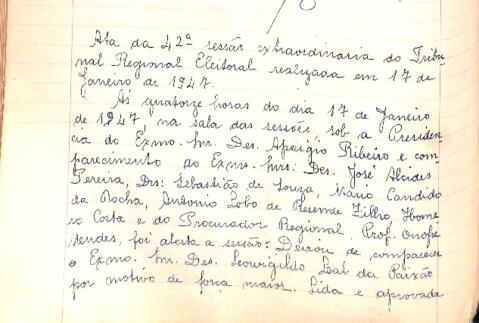 Ata da 42ª sessão extraordinaria do Tribu-
nal Regional Eleitoral realizada em 17 de
Janeiro de 1947.
Às quatorze horas do dia 17 de Janeiro
de 1947, na sala das sessões, sob a Presiden-
cia do Exmo. Snr. Des. Aprigio Ribeiro e com-
parecimento do Exmo. Snrs: Des. José Alcides
Pereira, Drs: Sebastião de Souza, Mario Candido
da Rocha, Antonio Lobo de Resende Filho, Home-
ro Costa e do Procurador Regional, Prof. Onofre
Mendes, foi aberta a sessão: Deixou de comparecer
o Exmo. Snr. Des. Leovigildo Leal da Paixão
por motivo de força maior. Lida e aprovada